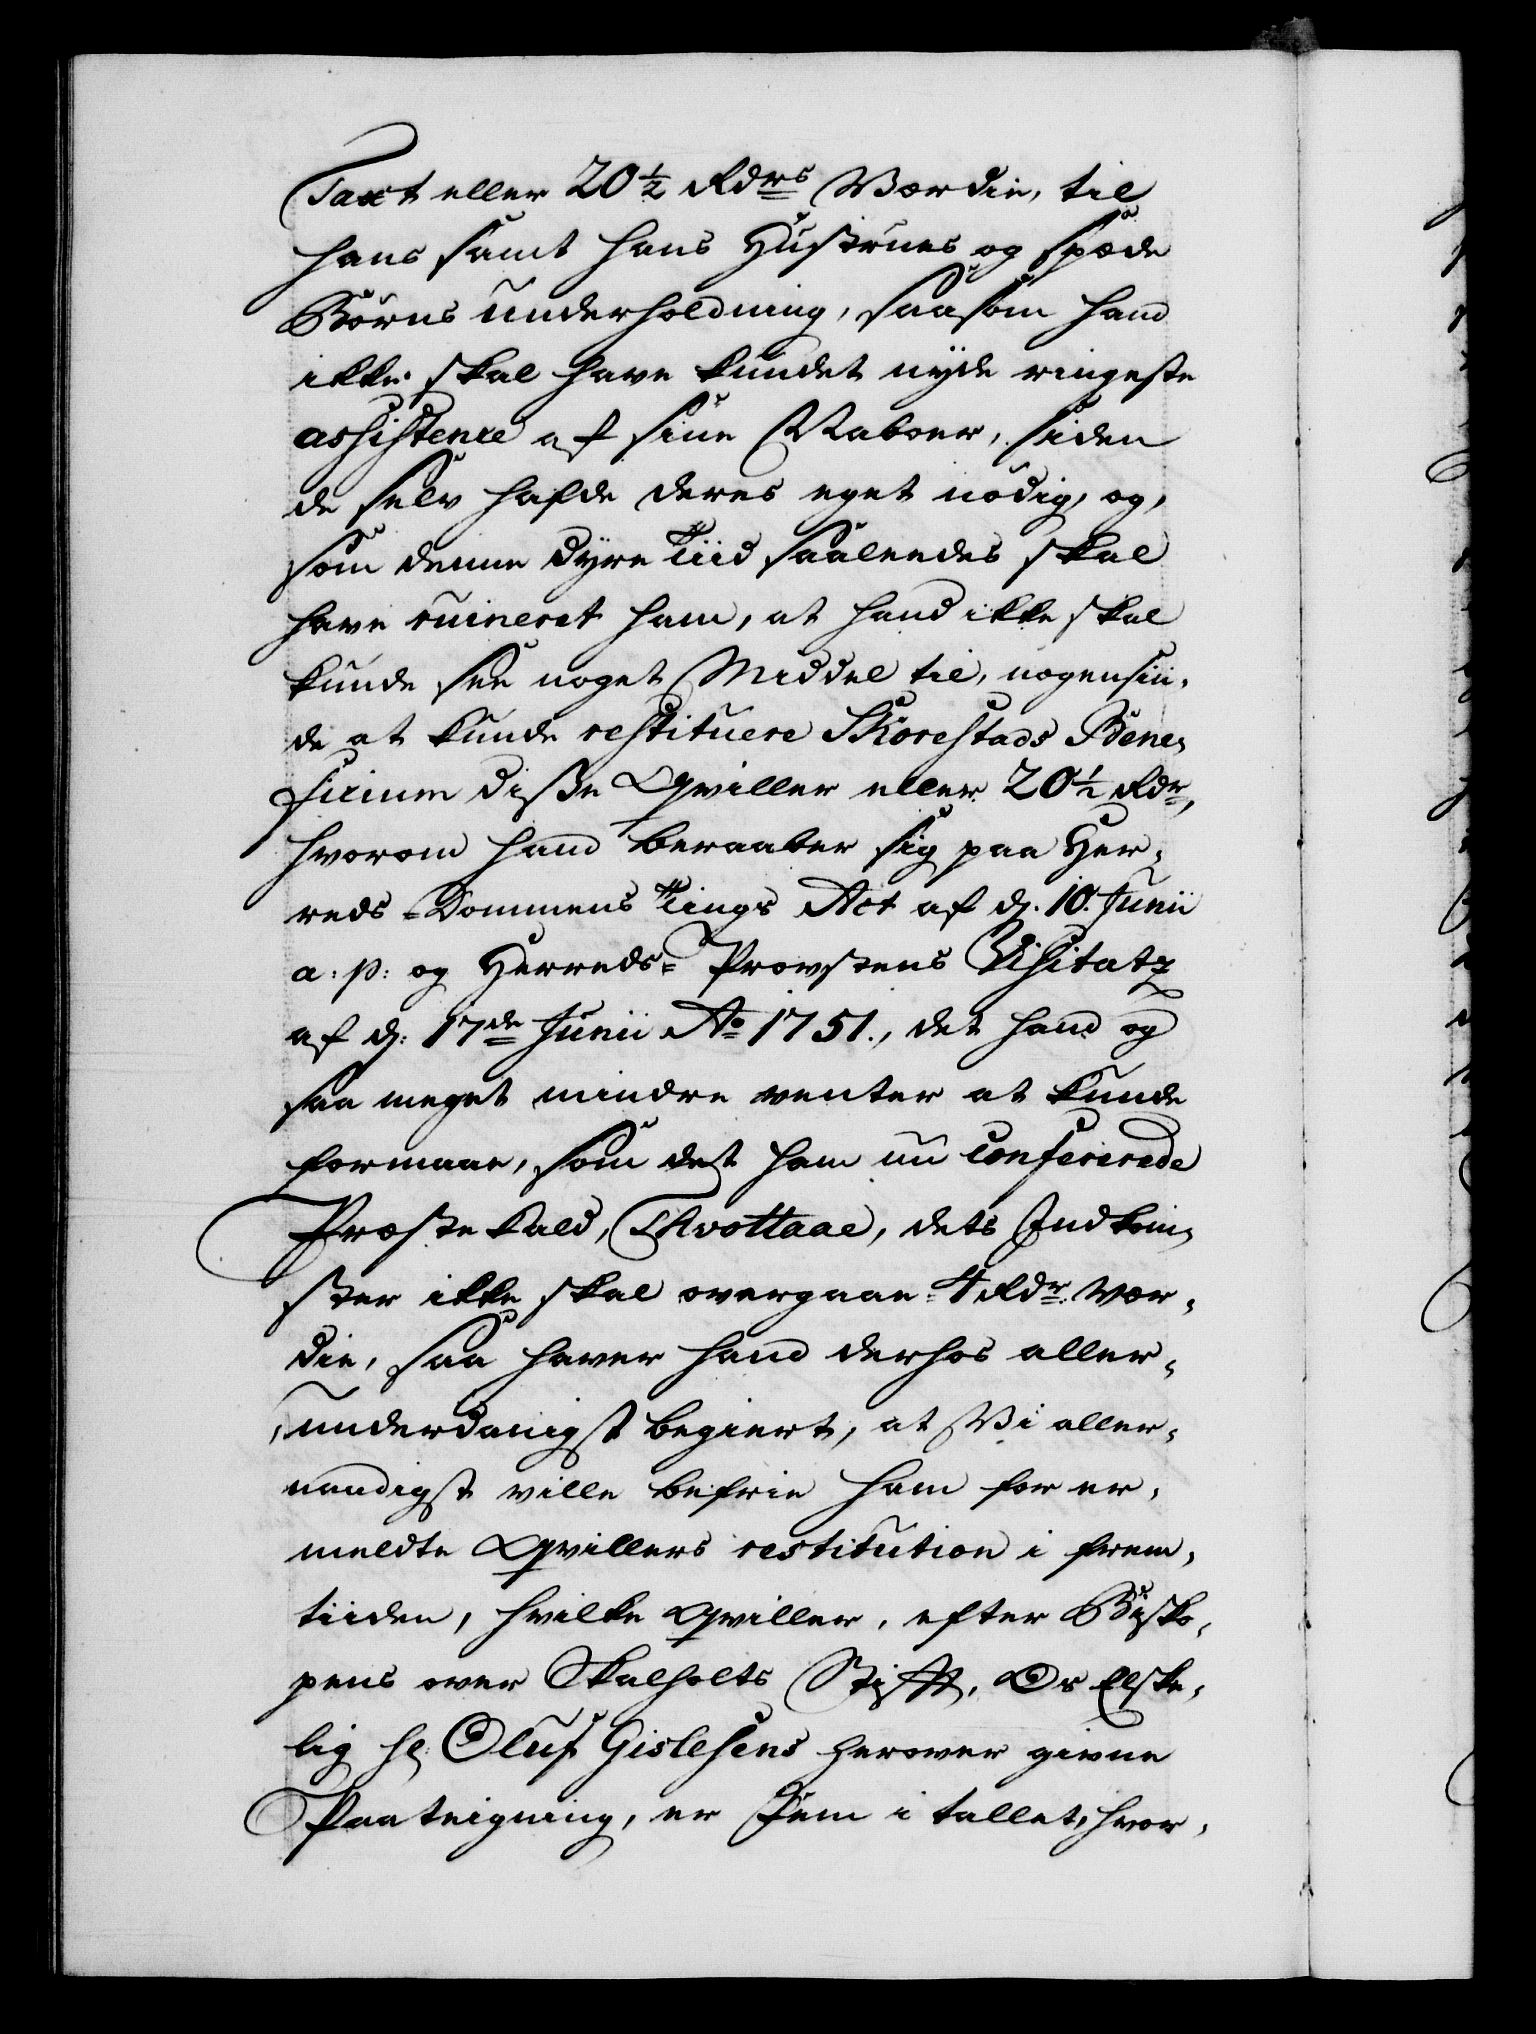 Taxt eller 20½ Rdrs Værdie, til
hans samt hans Hustrues og spæde
Børns underholdning, saasom hand
ikke skal have kundet nyde ringeste
assistence af sine Naboer, siden
de selv hafde deres eget nödig, og,
som denne dyre Tiid saaleedes skal
have ruineret ham, at hand ikke skal
kunde see noget Middel til, nogensin-
de at kunde restituere Skorestads Bene-
ficium diße Qviller eller 20½ Rdr,
hvorom hand beraaber sig paa Her-
reds-Dommens Tings Act af d. 10. Junii
a: p: og Herreds-Provstens Visitatz
af d: 17de Junii Ao 1751., det hand og
saa meget mindre venter at kunde
formaae, som det ham nu confererede
Præste Kald, Thvottaae, dets Indkom-
ster ikke skal overgaae 4 Rdr. Vær-
die, saa haver hand derhos aller-
underdanigst begiert, at Vi aller-
naadigst ville befrie ham for er-
meldte Qvillers restitution i frem-
tiiden, hvilke Qviller, efter Bisko-
pens over Skalholts Stift, Os Elske-
lig Hr: Oluf Gislesens herover givne
Paategning, er Fem i tallet, hvor-